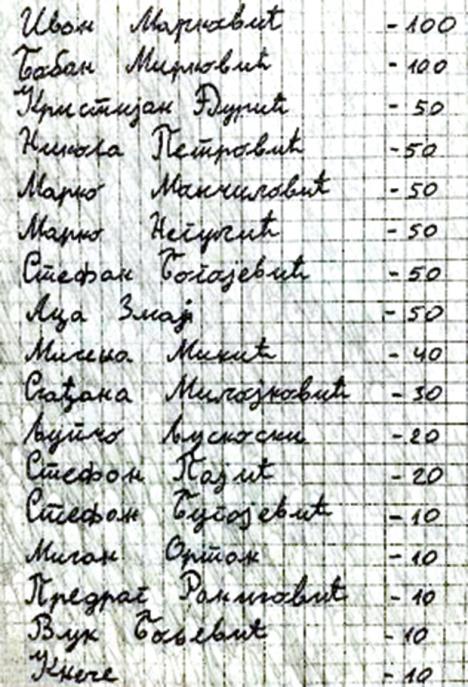 Иван Марковић - 100
Бобан Мирковић - 100
Кристијан Ђурић - 50
Никола Петровић - 50
Марко Манчиловић - 50
Марко - 50
Стефан Богојевић - 50
Аца Змај - 50
Милена Микић - 40
Слађана Милојковић - 30
Љупчо Љускоски - 20
Стефан Пајић - 20
Стефан Бугојевић - 10
Милан - 10
Предраг - 10
Вук - 10
- 10